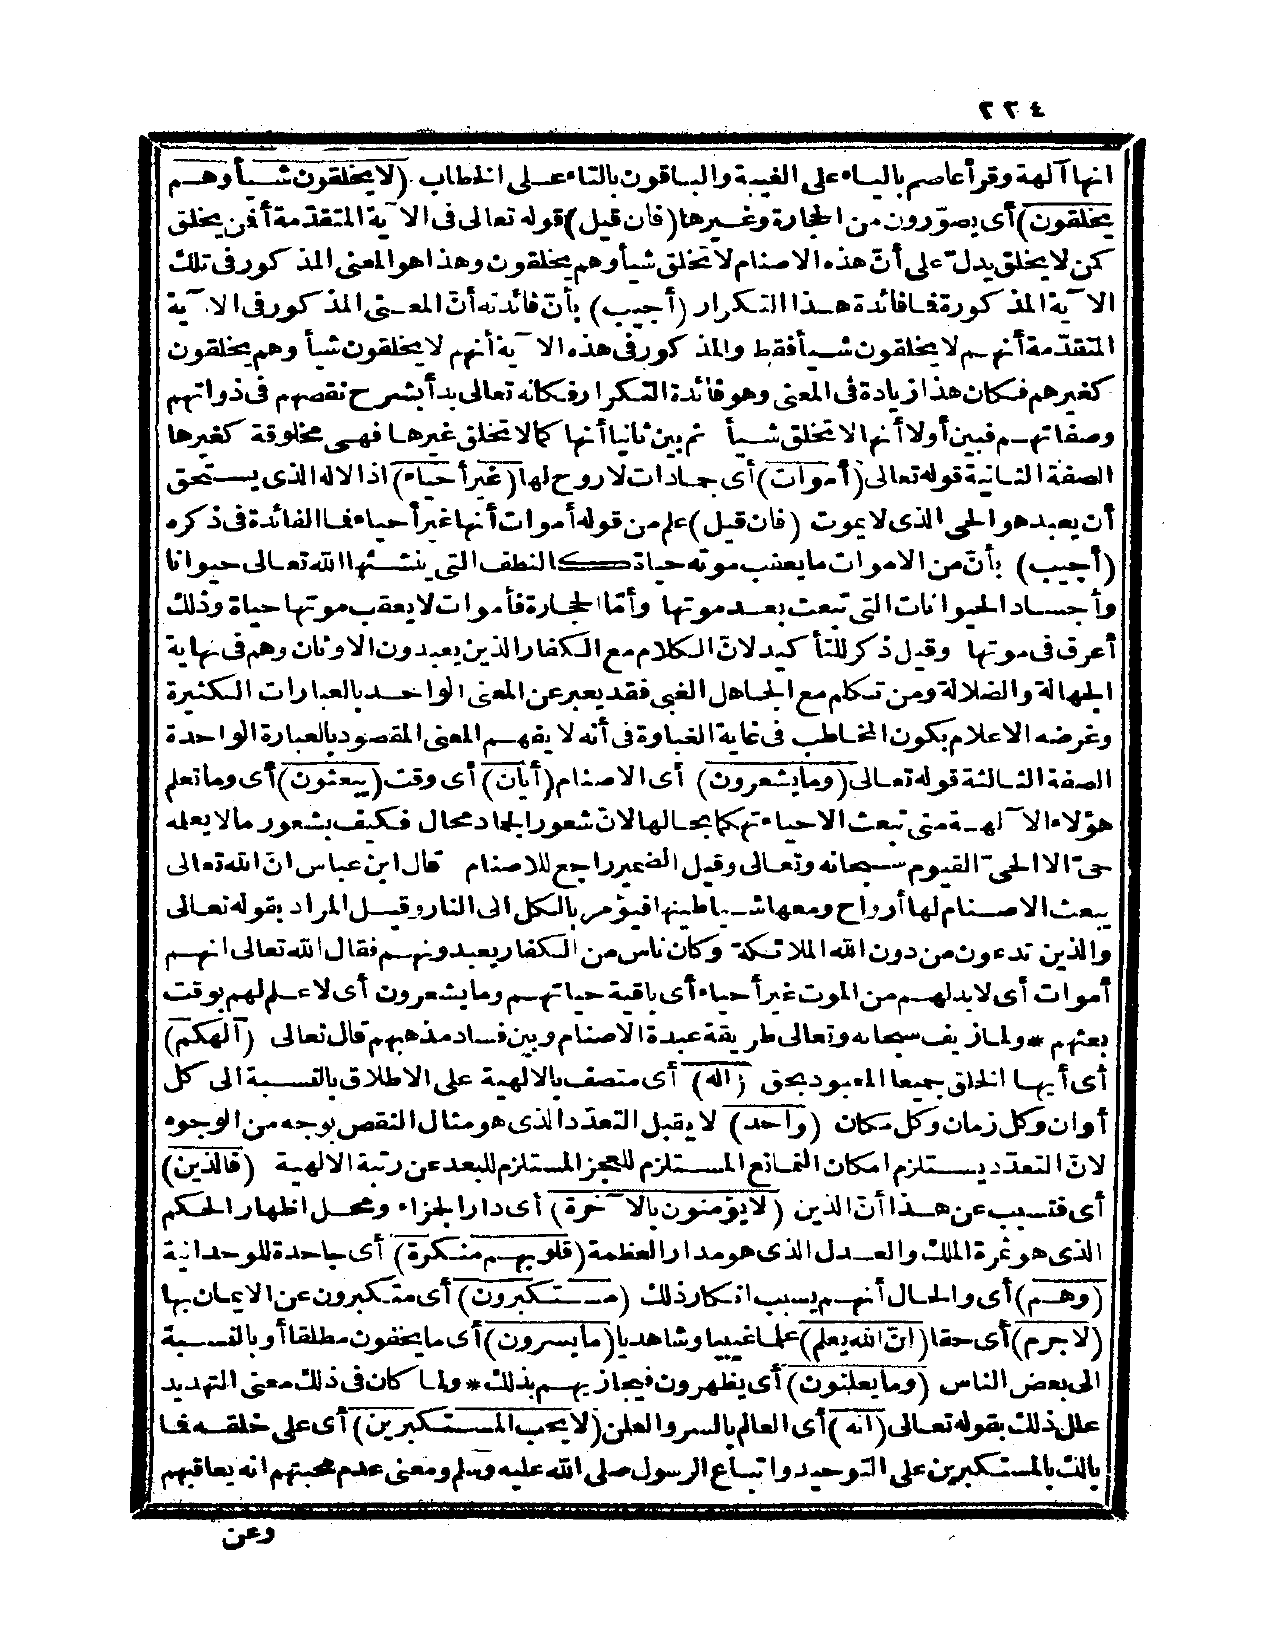 ٢٢٤
انها آلهة وقرأ عاصم بالياء على الغيبة والباقون بالتاء على الخطاب (لا يخلقون شيأ وهم
يخلقون) أى يصوّرون من الحجارة وغيرها (فان قيل) قوله تعالى فى الآية المتقدّمة أفمن يخلق
كمن لا يخلق يدلّ على أنّ هذه الاصنام لا تخلق شيأ وهم يخلقون وهذا هو المعنى المذكور فى تلك
الآية المذكورة فما فائدة هذا التكرار (أجيب) بأنّ فائدته أنّ المعنى المذكور فى الآية
المتقدّمة أنهم لا يخلقون شيأ فقط والمذكور فى هذه الآية أنهم لا يخلقون شيأ وهم يخلقون
كغيرهم فكان هذا زيادة فى المعنى وهو فائدة التكرار فكانه تعالى بدأ بشرح نقصهم فى ذواتهم
وصفاتهم فبين أولا أنها لا تخلق شيأ ثم بين ثانيا أنها كما لا تخلق غيرها فهى مخلوقة كغيرها
الصفة الثانية قوله تعالى (أموات) أى جمادات لا روح لها (غير أحياء) اذ الاله الذى يستحق
أن يعبد هو الحى الذى لا يموت (فان قيل) علم من قوله أموات أنها غير أحياء فما الفائدة فى ذكره
(أجيب) بأنّ من الاموات ما يعقب موته حياة كالنطف التى ينشئها الله تعالى حيوانا
وأجساد الحيوانات التى تبعث بعد موتها وأمّا الحجارة فأموات لا يعقب موتها حياة وذلك
أعرق فى موتها وقيل ذكر للتأكيد لانّ الكلام مع الكفار الذين يعبدون الاوثان وهم فى نهاية
الجهالة والضلالة ومن تكلم مع الجاهل الغبى فقد يعبر عن المعنى الواحد بالعبارات الكثيرة
وغرضه الاعلام بكون المخاطب فى غاية الغباوة فى أنه لا يفهم المعنى المقصود بالعبارة الواحدة
الصفة الثالثة قوله تعالى (وما يشعرون) أى الاصنام (أيان) أى وقت (يبعثون) أى وما تعلم
هؤلاء الآلهة متى تبعث الاحياء تهكما بحالها لانّ شعور الجماد محال فكيف بشعور ما لا يعلمه
حىّ الا الحىّ القيوم سبحانه وتعالى وقيل الضمير راجع للاصنام قال ابن عباس انّ الله تعالى
يبعث الاصنام لها أرواح ومعها شياطينها فيؤمر بالكل الى النار وقيل المراد بقوله تعالى
والذين تدعون من دون الله الملائكة وكان ناس من الكفار يعبدونهم فقال الله تعالى انهم
أموات أى لا بد لهم من الموت غير أحياء أى باقية حياتهم وما يشعرون أى لا علم لهم بوقت
بعثهم * ولما زيف سبحانه وتعالى طريقة عبدة الاصنام وبين فساد مذهبهم قال تعالى (آلهكم)
أى أيها الخلق جميعا المعبود بحق (اله) أى متصف بالالهية على الاطلاق بالنسبة الى كل
أوان وكل زمان وكل مكان (واحد) لا يقبل التعدّد الذى هو مثال النقص بوجه من الوجوه
لانّ التعدّد يستلزم امكان التمانع المستلزم للعجز المستلزم للبعد عن رتبة الالهية (فالذين)
أى فتسبب عن هذا أنّ الذين (لا يؤمنون بالآخرة) أى دار الجزاء ومحل اظهار الحكم
الذى هو ثمرة الملك والعدل الذى هو مدار العظمة (قلوبهم منكرة) أى جاحدة للوحدانية
(وهم) أى والحال أنهم بسبب انكار ذلك (مستكبرون) أى متكبرون عن الايمان بها
(لا جرم) أى حقا (انّ الله يعلم) علما غيبيا وشاهديا (ما يسرون) أى ما يخفون مطلقا أو بالنسبة
الى بعض الناس (وما يعلنون) أى يظهرون فيجازيهم بذلك * ولما كان فى ذلك معنى التهديد
علل ذلك بقوله تعالى (انه) أى العالم بالسر والعلن (لا يحب المستكبرين) أى على خلقه فما
بالك بالمستكبرين على التوحيد واتباع الرسول صلى الله عليه وسلم ومعنى عدم محبتهم انه يعاقبهم
وعن